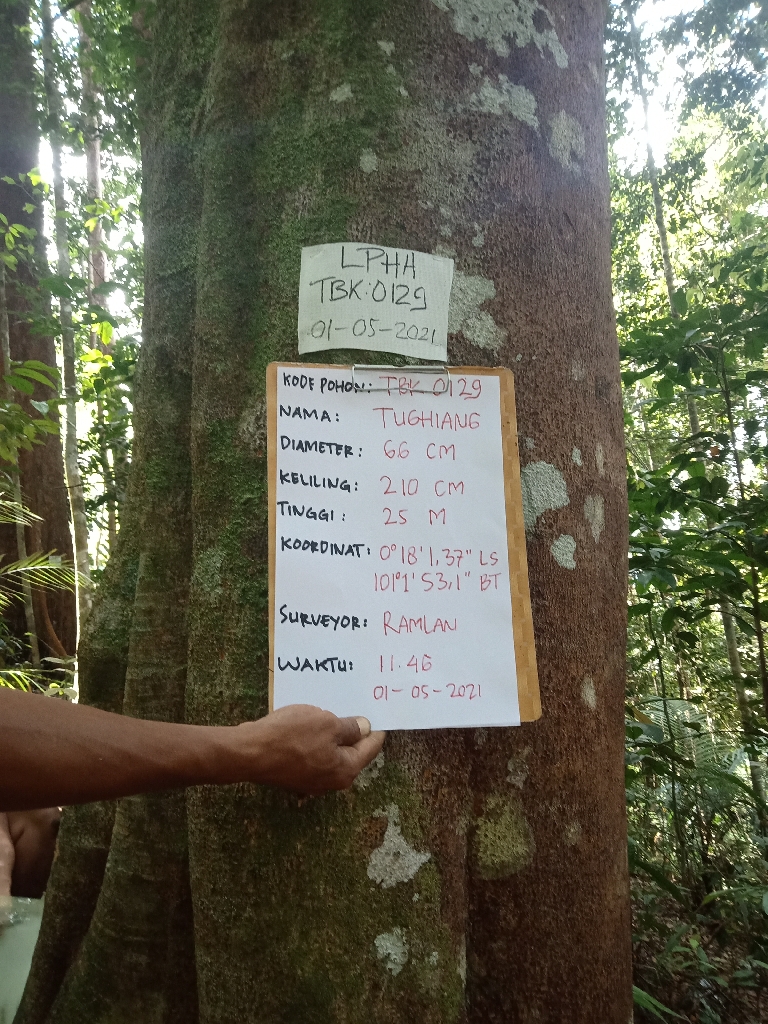 LPHH
TBK:0129
01-05-2021
KODE POHON: TBK 0129
NAMA: TUGHIANG
DIAMETER: 66 CM
KELILING: 210 CM
TINGGI: 25 M
KOORDINAT: 0°18'1,37" LS
101°1'53,1" BT
SURVEYOR: RAMLAN
WAKTU: 11.46
01-05-2021